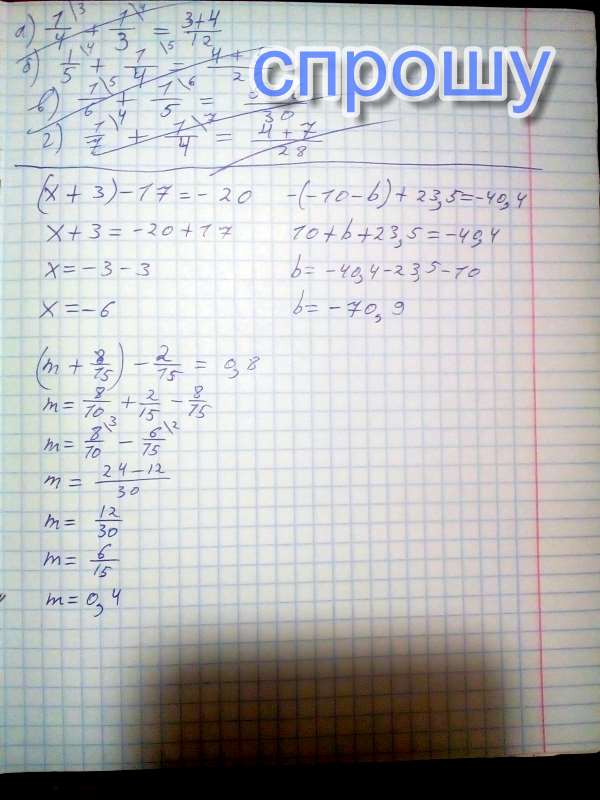 а) 1/4 \3 + 1/3 \4 = 3+4/12
б) 1/5 \4 + 1/4 \5 = 4+/2
в) 1/6 \5 + 1/5 \6 = /30
г) 1/7 \4 + 1/4 \7 = 4+7/28
спрошу
(x + 3) - 17 = - 20
x + 3 = - 20 + 17
x = - 3 - 3
x = - 6
-(-10 - b) + 23,5 = -40,4
10 + b + 23,5 = -40,4
b = -40,4 - 23,5 - 10
b = - 70, 9
(m + 8/15) - 2/15 = 0,8
m = 8/10 + 2/15 - 8/15
m = 8/10 \3 - 6/15 \2
m = 24 - 12/30
m = 12/30
m = 6/15
m = 0,4